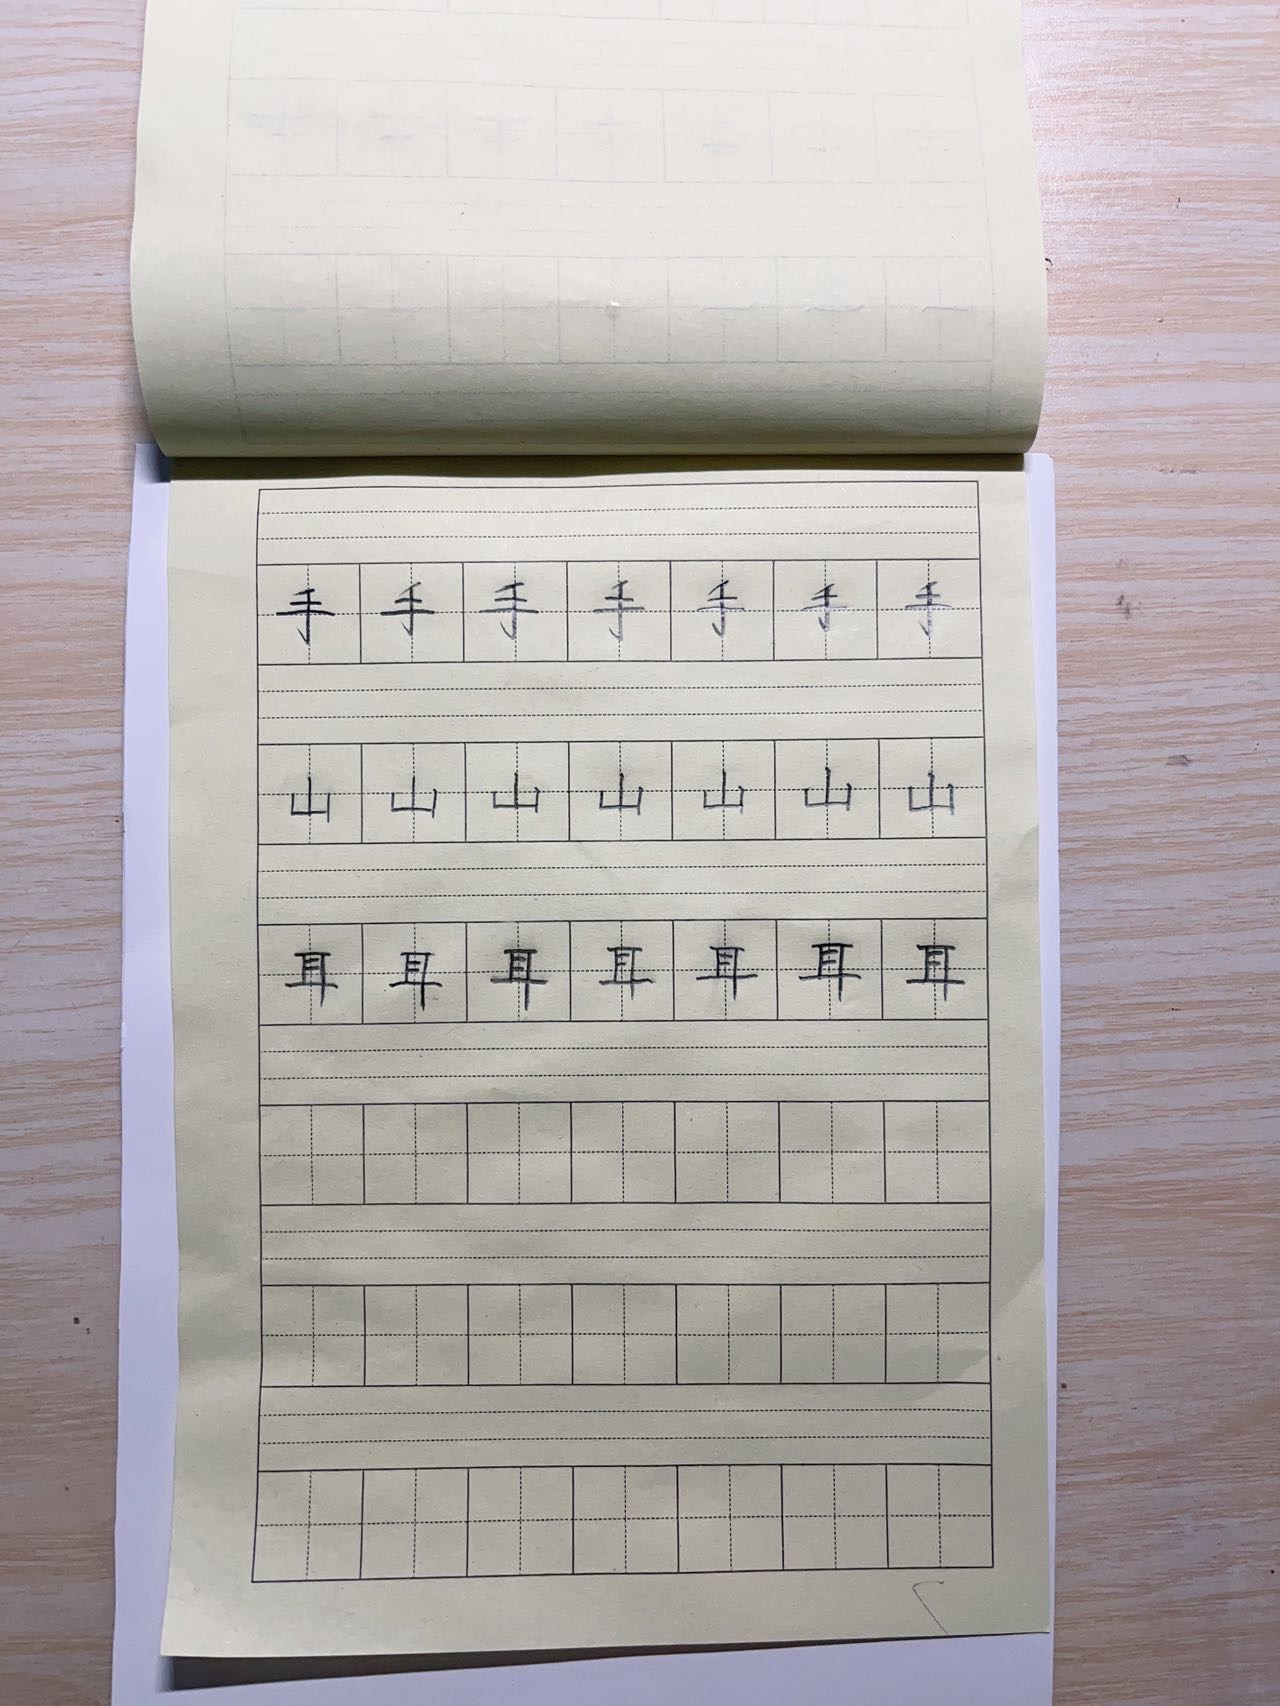 手手手手手手手
山山山山山山山
耳耳耳耳耳耳耳